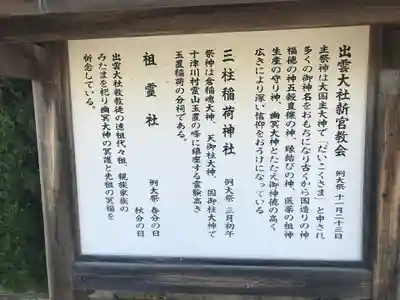 出雲大社新宮教会 例大祭 十一月二十三日
主祭神は大国主大神で「だいこくさま」と申され
多くの御神名をおもちになり古くから国造りの神
福徳の神五穀豊穣の神、縁結びの神、医薬の祖神
生産の守り神、幽冥大神とたたえ御神徳の高く
広きにより深い信仰をおうけになっている
三柱稲荷神社 例大祭 三月初午
祭神は倉稲魂大神、天御柱大神、国御柱大神で
十津川村霊山玉置の峰に鎮座する霊験高き
玉置稲荷の分祠である。
祖霊社 例大祭 春分の日
秋分の日
出雲大社教教徒の遠祖代々祖、親族家族の
みたまを祀り幽冥大神の冥護と先祖の冥福を
祈念している。